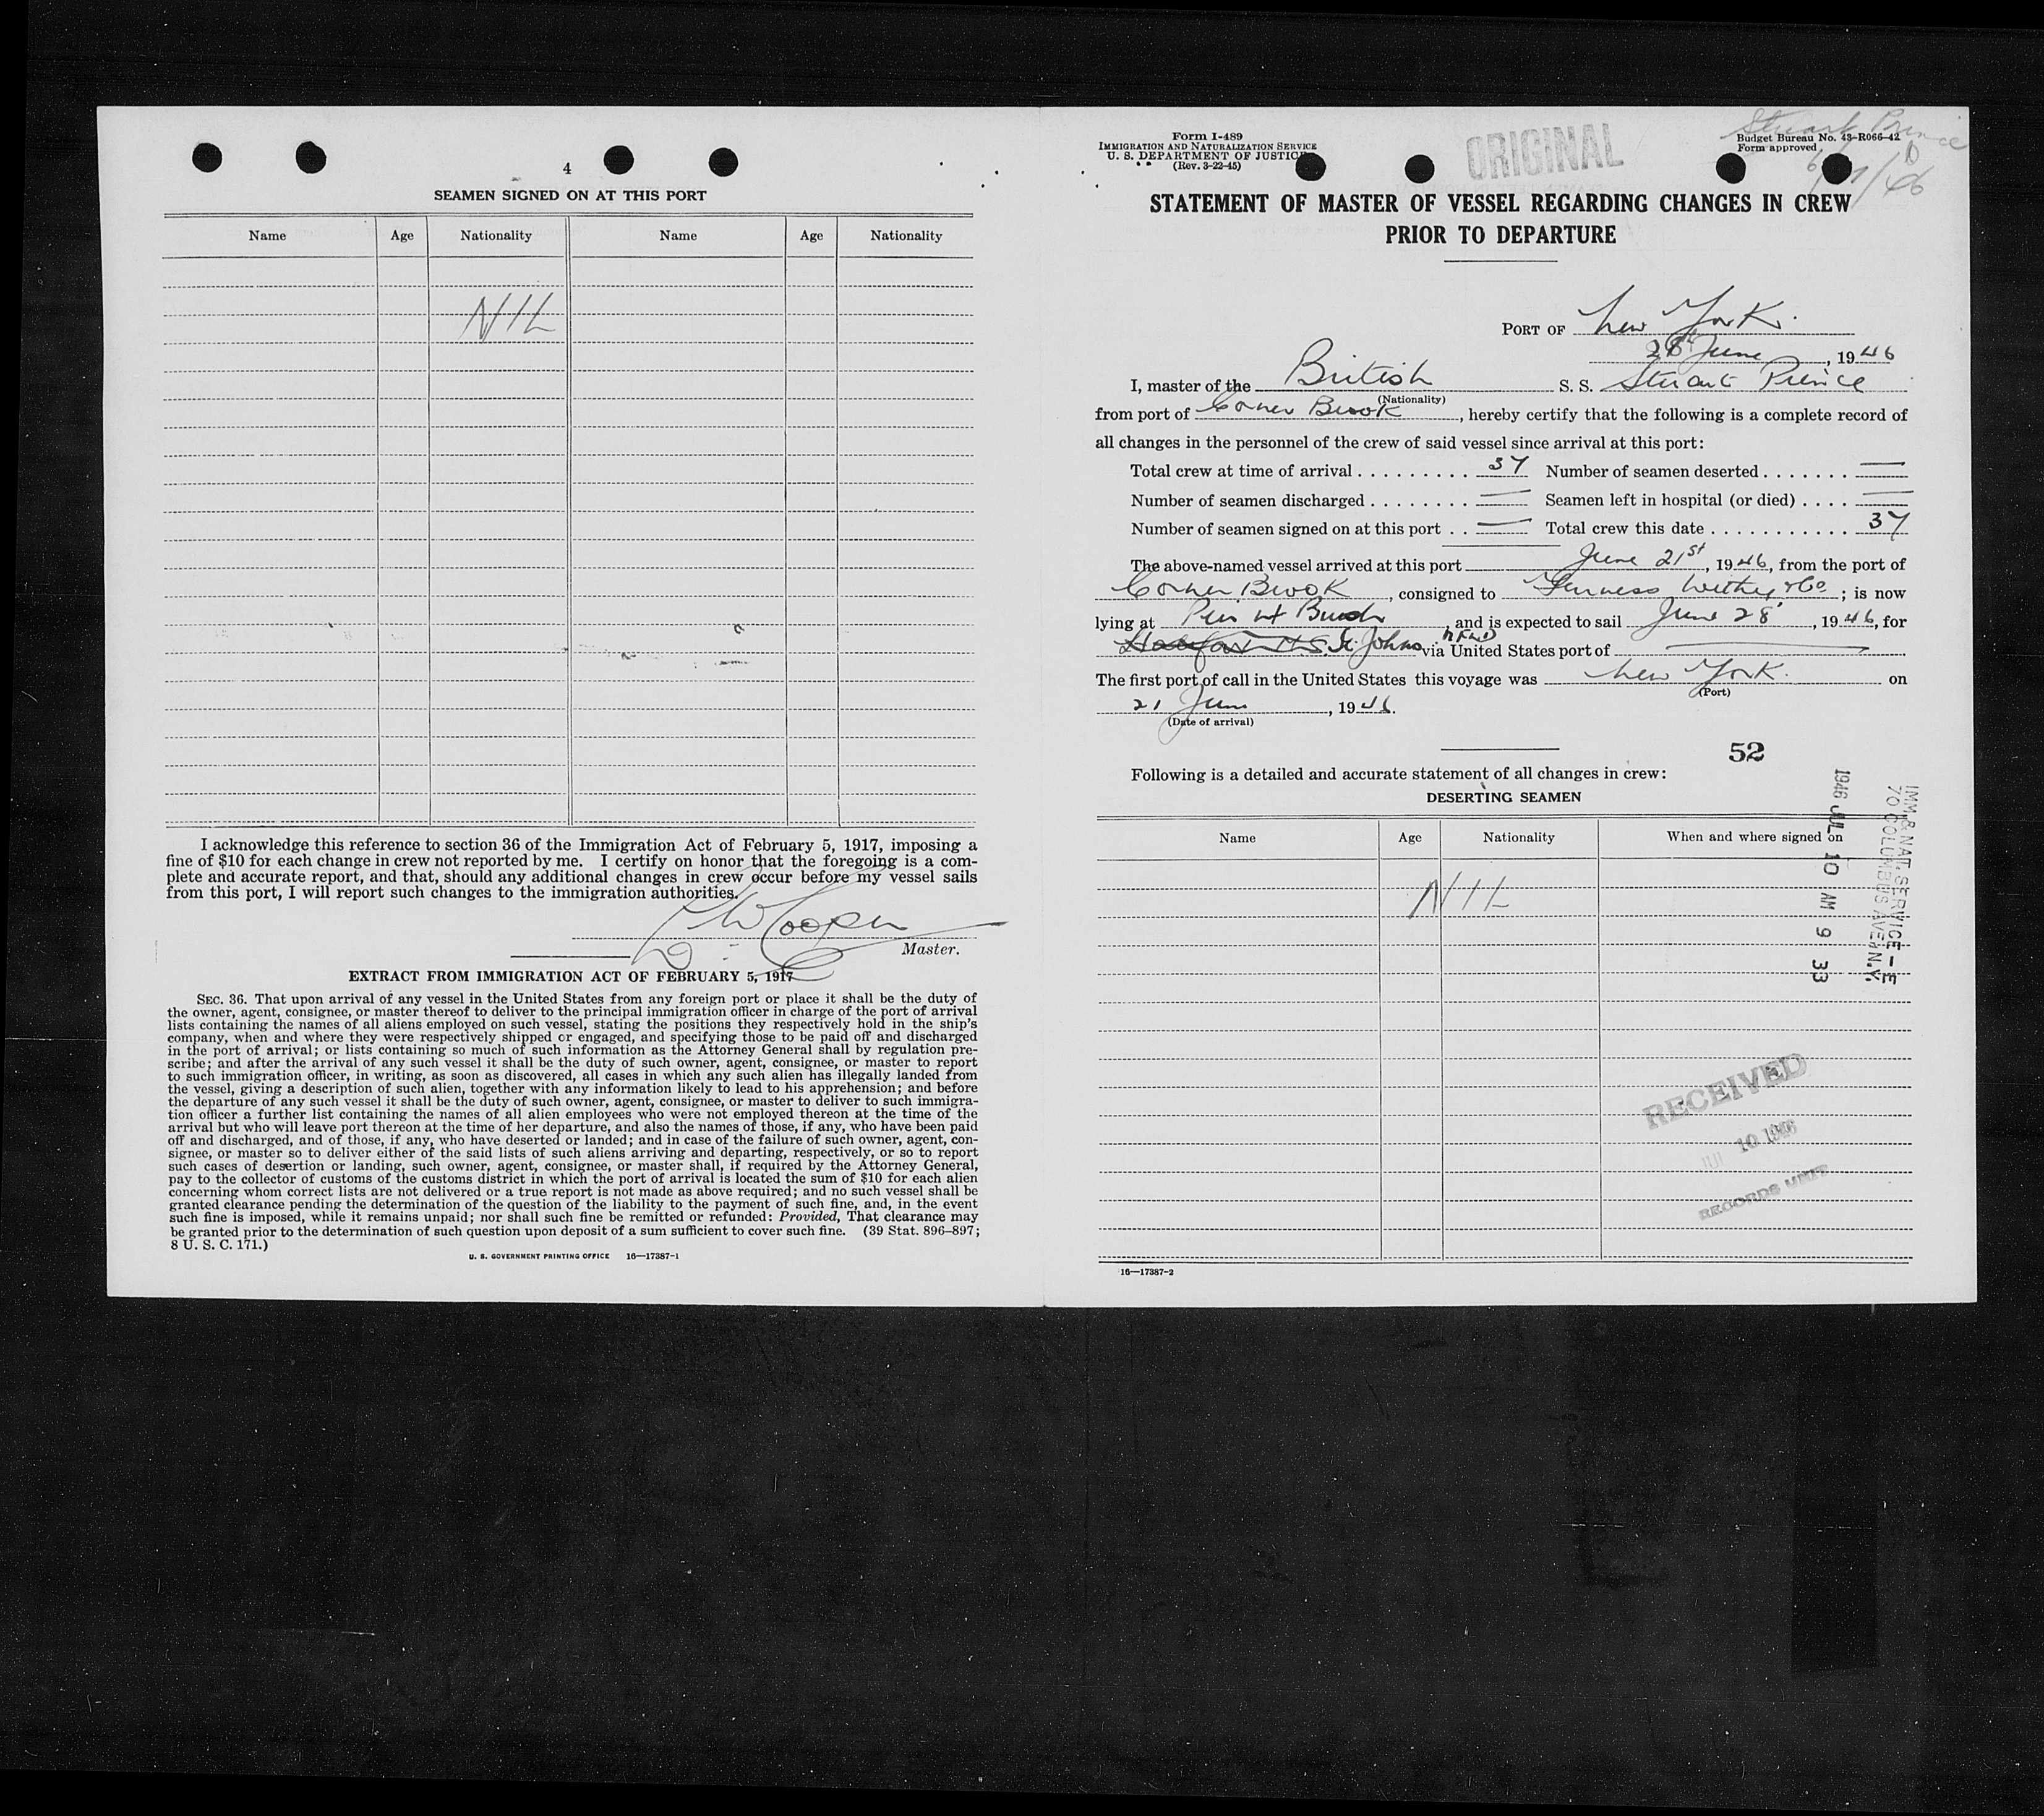 4
SEAMEN SIGNED ON AT THIS PORT
Name Age Nationality Name Age Nationality
NIL
I acknowledge this reference to section 36 of the Immigration Act of February 5, 1917, imposing a
fine of $10 for each change in crew not reported by me. I certify on honor that the foregoing is a com-
plete and accurate report, and that, should any additional changes in crew occur before my vessel sails
from this port, I will report such changes to the immigration authorities.
Cooper
Master.
EXTRACT FROM IMMIGRATION ACT OF FEBRUARY 5, 1917
SEC. 36. That upon arrival of any vessel in the United States from any foreign port or place it shall be the duty of
the owner, agent, consignee, or master thereof to deliver to the principal immigration officer in charge of the port of arrival
lists containing the names of all aliens employed on such vessel, stating the positions they respectively hold in the ship's
company, when and where they were respectively shipped or engaged, and specifying those to be paid off and discharged
in the port of arrival; or lists containing so much of such information as the Attorney General shall by regulation pre-
scribe; and after the arrival of any such vessel it shall be the duty of such owner, agent, consignee, or master to report
to such immigration officer, in writing, as soon as discovered, all cases in which any such alien has illegally landed from
the vessel, giving a description of such alien, together with any information likely to lead to his apprehension; and before
the departure of any such vessel it shall be the duty of such owner, agent, consignee, or master to deliver to such immigra-
tion officer a further list containing the names of all alien employees who were not employed thereon at the time of the
arrival but who will leave port thereon at the time of her departure, and also the names of those, if any, who have been paid
off and discharged, and of those, if any, who have deserted or landed; and in case of the failure of such owner, agent, con-
signee, or master so to deliver either of the said lists of such aliens arriving and departing, respectively, or so to report
such cases of desertion or landing, such owner, agent, consignee, or master shall, if required by the Attorney General,
pay to the collector of customs of the customs district in which the port of arrival is located the sum of $10 for each alien
concerning whom correct lists are not delivered or a true report is not made as above required; and no such vessel shall be
granted clearance pending the determination of the question of the liability to the payment of such fine, and, in the event
such fine is imposed, while it remains unpaid; nor shall such fine be remitted or refunded: Provided, That clearance may
be granted prior to the determination of such question upon deposit of a sum sufficient to cover such fine. (39 Stat. 896-897;
8 U. S. C. 171.)
U. S. GOVERNMENT PRINTING OFFICE 16—17387-1
Form I-489
IMMIGRATION AND NATURALIZATION SERVICE
U. S. DEPARTMENT OF JUSTICE
(Rev. 3-22-45)
ORIGINAL
Stuart Prince
Budget Bureau No. 43-R066-42
Form approved
STATEMENT OF MASTER OF VESSEL REGARDING CHANGES IN CREW
PRIOR TO DEPARTURE
PORT OF New York
28 June, 1946
I, master of the British S. S. Stuart Prince
(Nationality)
from port of Corner Brook, hereby certify that the following is a complete record of
all changes in the personnel of the crew of said vessel since arrival at this port:
Total crew at time of arrival 37 Number of seamen deserted —
Number of seamen discharged — Seamen left in hospital (or died) —
Number of seamen signed on at this port — Total crew this date 37
The above-named vessel arrived at this port June 21st, 1946, from the port of
Corner Brook, consigned to Furness Withy & Co; is now
lying at Pier 4, and is expected to sail June 28, 1946, for
St. Johns NFLD via United States port of —
The first port of call in the United States this voyage was New York on
(Port)
21 June, 1946.
(Date of arrival)
52
Following is a detailed and accurate statement of all changes in crew:
DESERTING SEAMEN
Name Age Nationality When and where signed on
NIL
IMM. & NAT. SERVICE - E
70 COLUMBUS AVE. N.Y.
1946 JUL 10 AM 9 33
RECEIVED
JUL 10 1946
RECORDS UNIT
16—17387-2